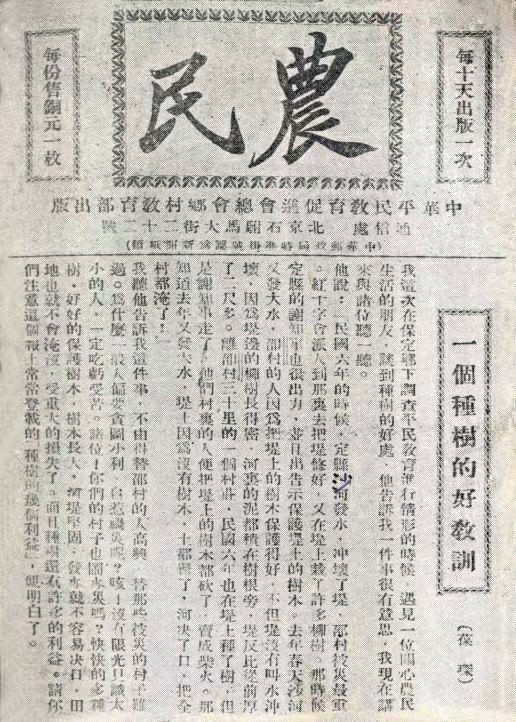 每十天出版一次
農民
每份售銅元一枚
中華平民敎育促進會總會鄉村敎育部出版
通信處 北京石駙馬大街二十二號
(中華郵政局特准掛號認爲新聞紙類)
一個種樹的好敎訓
(葆琛)
我這次在保定鄉下調查平民敎育進行情形的時候，遇見一位關心農民
生活的朋友，談到種樹的好處，他告訴我一件事很有意思，我現在講
來與諸位聽一聽。
他說：「民國六年的時候，定縣沙河發水，冲壞了堤，邵村被災最重
。紅十字會派人到那裏去把堤修好，又在堤上栽了許多柳樹。那時候
定縣的謝知事也很出力，當日出告示保護堤上的樹木。去年春天沙河
又發大水，邵村的人因爲把堤上的樹木保護得好，不但堤沒有叫水冲
壞，因爲堤邊的柳樹長得密，河裏的泥都積在樹根旁，堤反比從前厚
了二尺多。離邵村三十里的一個村莊，民國六年也在堤上種了樹，但
是謝知事走了，他們村裏的人便把堤上的樹木都砍了，賣成柴火。那
知道去年又發大水，堤上因爲沒有樹木，土都鬆了，河决了口，把全
村都淹了！」
我聽他告訴我這件事，不由得替邵村的人高興，替那些被災的村子難
過。爲什麽一般人偏要貪圖小利，自惹禍災呢？咳！沒有眼光只識太
小的人，一定吃虧受苦。諸位！你們的村子也鬧水災嗎？快快的多種
樹，好好的保護樹木，樹木長大，河堤堅固，發水就不容易决口，田
地也就不會淹沒，受重大的損失了。而且種樹還有許多的利益。請你
們注意這個報上常常登載的「種樹的幾個利益」，便明白了。